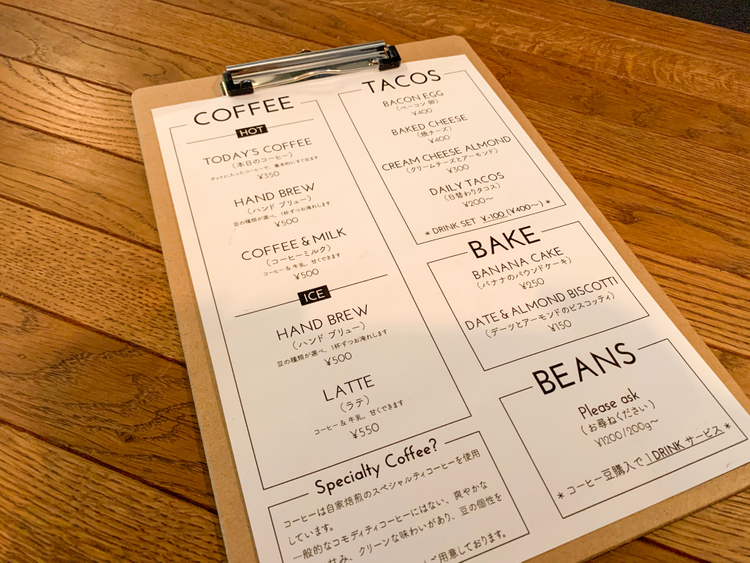 COFFEE
HOT
TODAY'S COFFEE
(本日のコーヒー)
ポットに入ったコーヒーで、基本的にすぐ出ます
¥350
HAND BREW
(ハンド ブリュー)
豆の種類が選べ、1杯ずつお淹れします
¥500
COFFEE & MILK
(コーヒーミルク)
コーヒー & 牛乳。甘くできます
¥500
ICE
HAND BREW
(ハンド ブリュー)
豆の種類が選べ、1杯ずつお淹れします
¥500
LATTE
(ラテ)
コーヒー & 牛乳。甘くできます
¥550
Specialty Coffee?
コーヒーは自家焙煎のスペシャルティコーヒーを使用
しています。
一般的なコモディティコーヒーにはない、爽やかな
甘み、クリーンな味わいがあり、豆の個性を
ご用意しております。
TACOS
BACON EGG
(ベーコン 卵)
¥400
BAKED CHEESE
(焼チーズ)
¥400
CREAM CHEESE ALMOND
(クリームチーズとアーモンド)
¥300
DAILY TACOS
(日替わりタコス)
¥200〜
* DRINK SET ¥-100 (¥400〜) *
BAKE
BANANA CAKE
(バナナのパウンドケーキ)
¥250
DATE & ALMOND BISCOTTI
(デーツとアーモンドのビスコッティ)
¥150
BEANS
Please ask
(お尋ねください)
¥1200/200g〜
* コーヒー豆購入で 1 DRINK サービス *